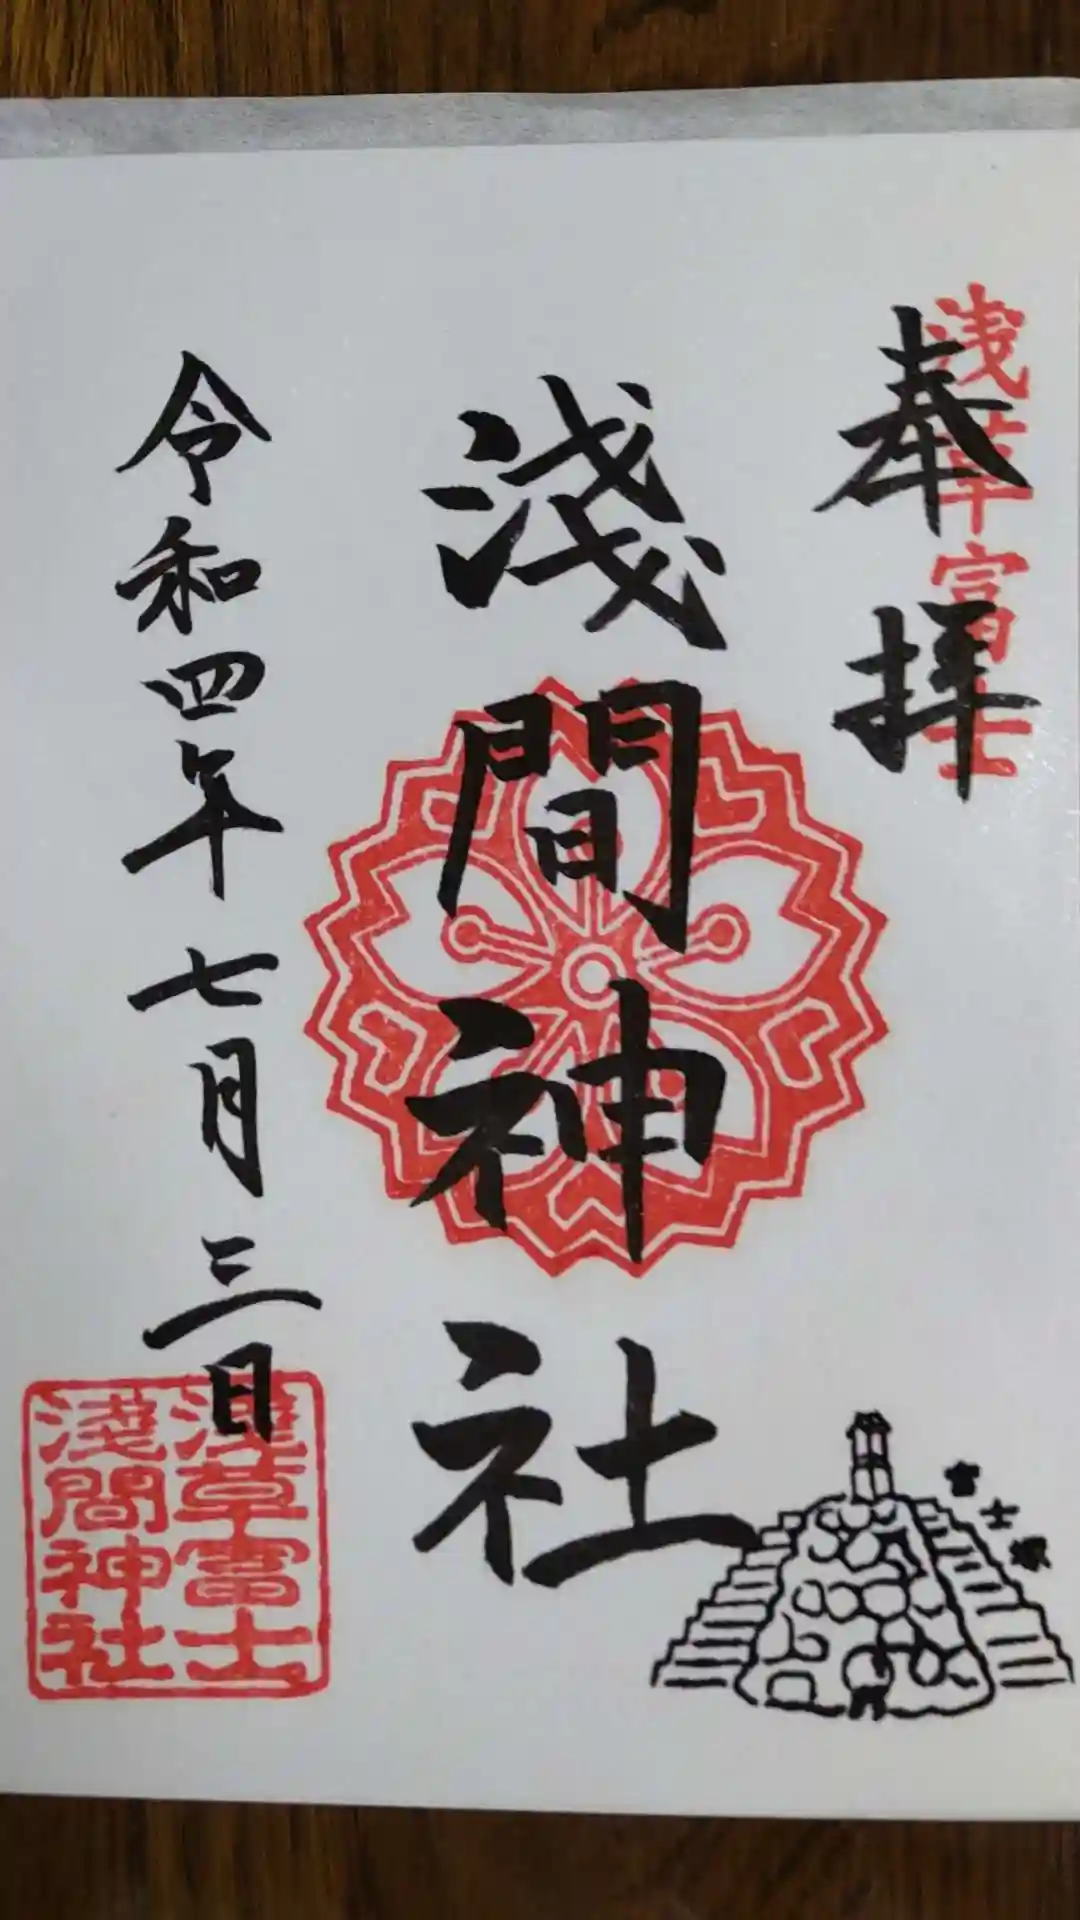 浅草富士
奉拝
淺間神社
令和四年七月三日
富士塚
浅草富士
淺間神社